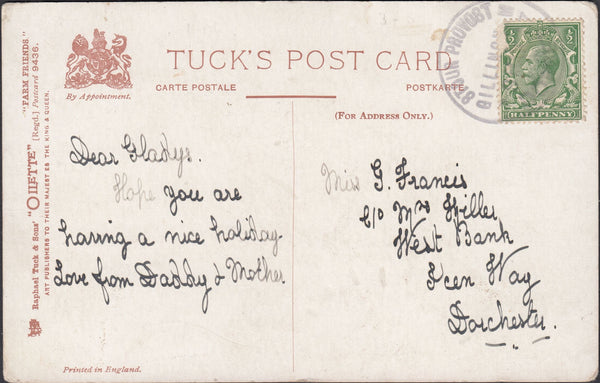 "FARM FRIENDS."
Raphael Tuck & Sons' "OILETTE" [Regd.] Postcard 9436.
ART PUBLISHERS TO THEIR MAJESTIES THE KING & QUEEN.
By Appointment.
TUCK'S POST CARD
CARTE POSTALE
POSTKARTE
(FOR ADDRESS ONLY.)
STOUR PROVOST
GILLING
½ ½
HALFPENNY
Dear Gladys.
Hope you are
having a nice holiday.
Love from Daddy & Mother
Miss G. Francis
c/o Mrs Hiller
West Bank
Icen Way
Dorchester.
Printed in England.